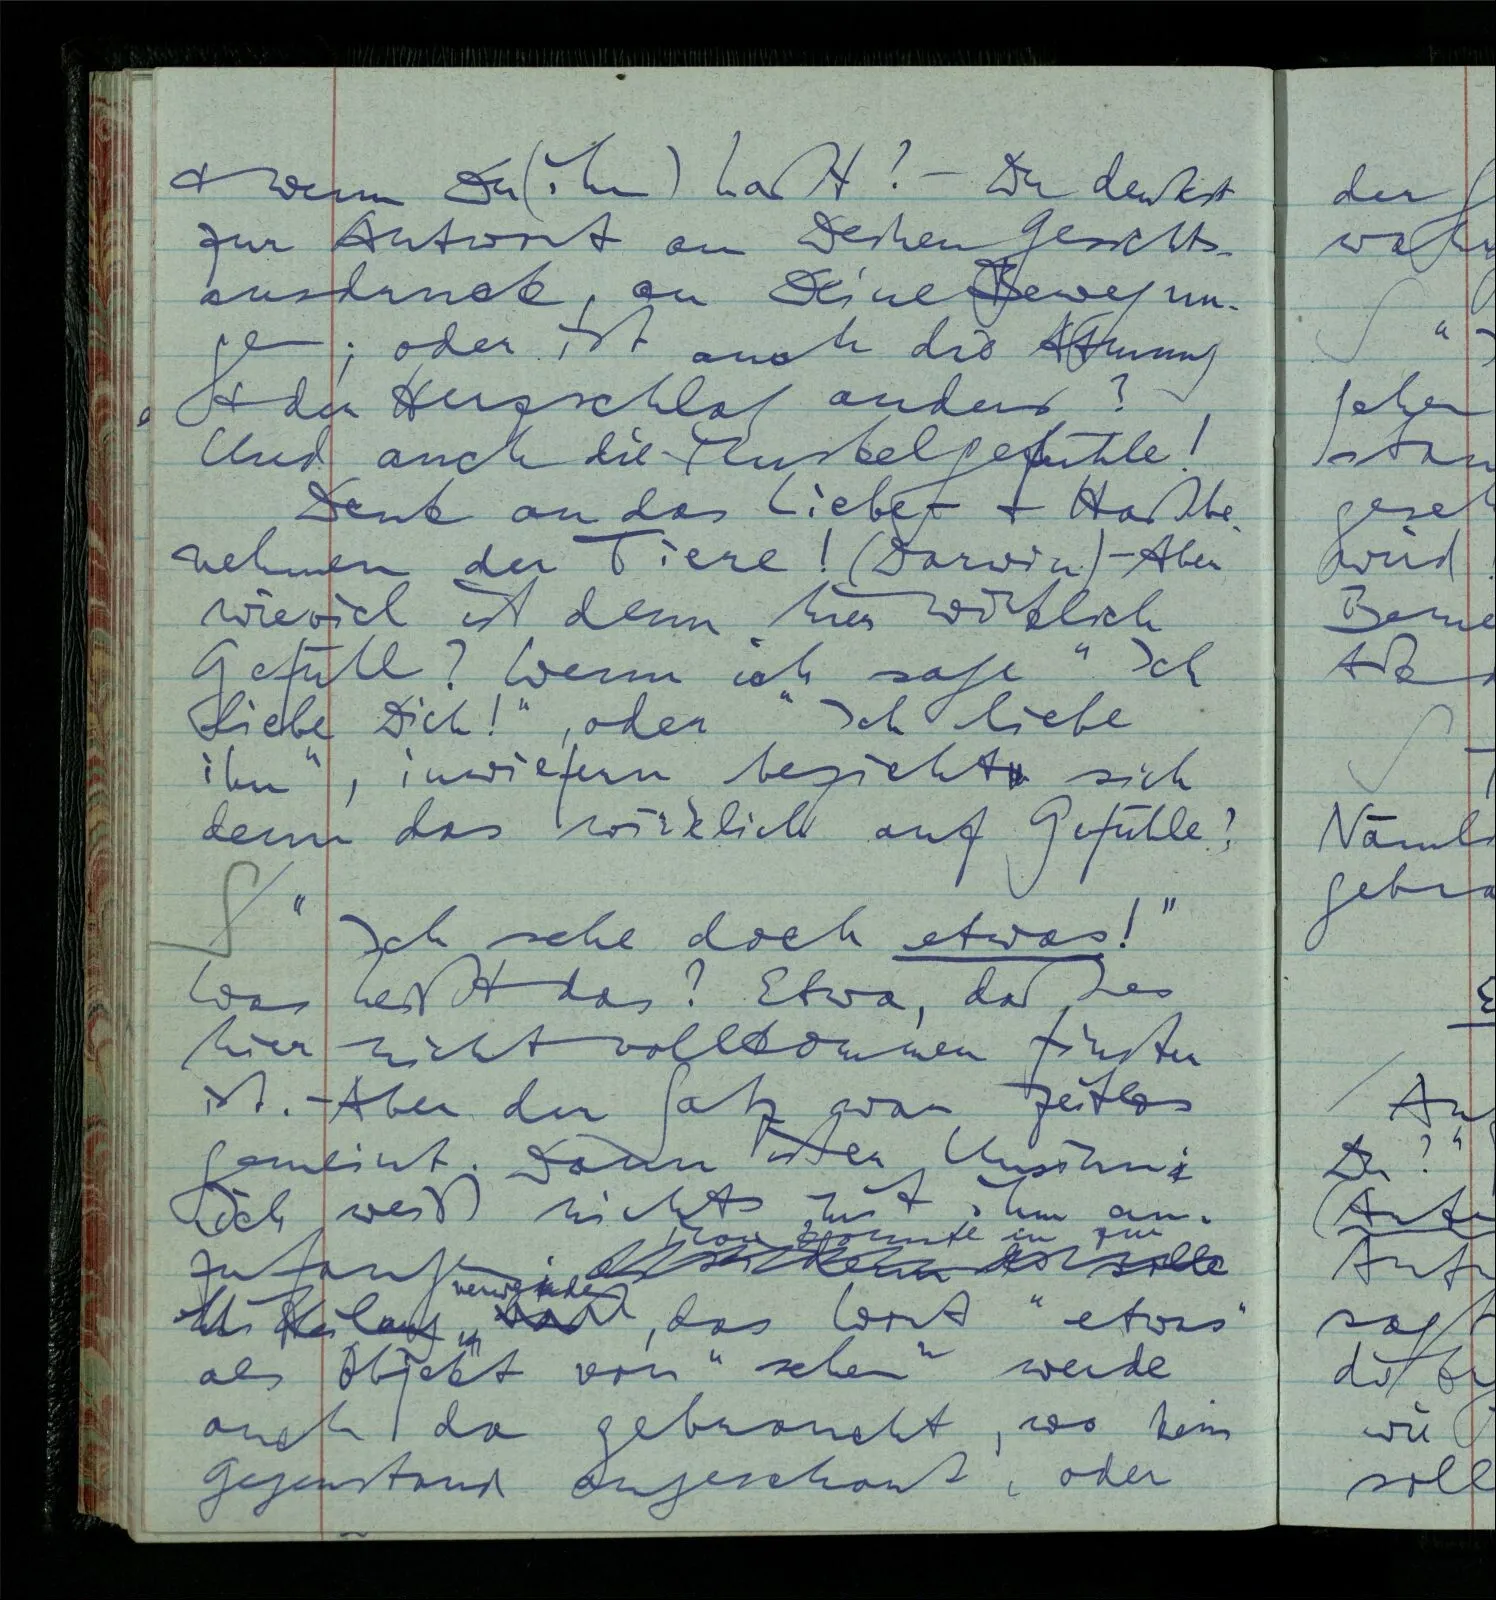 & wenn Du (ihn) haßt? – Du denkst
zur Antwort an Deinen Gesichts-
ausdruck, an Deine Bewegun-
gen; oder ist auch die Atmung
& der Herzschlag anders?
Und auch die Muskelgefühle!
Denk an das Liebe- & Haßbe-
nehmen der Tiere! (Darwin) – Aber
wieviel ist denn hier wirklich
Gefühl? Wenn ich sage "Ich
liebe Dich!", oder "Ich liebe
ihn", inwiefern bezieht sich
denn das wirklich auf Gefühle?
S / " Ich sehe doch etwas!"
Was heißt das? Etwa, daß es
hier nicht vollkommen finster
ist. – Aber der Satz war zeitlos
gemeint. Dann ist er Unsinn;
ich weiß nichts mit ihm an-
man könnte ihn zur
zufangen. denn es solle
verwenden
Mitteilung, das Wort "etwas"
als Objekt von "sehen" werde
auch da gebraucht, wo kein
Gegenstand angeschaut, oder
der
"
sehen
wird
Du?"
wie
soll